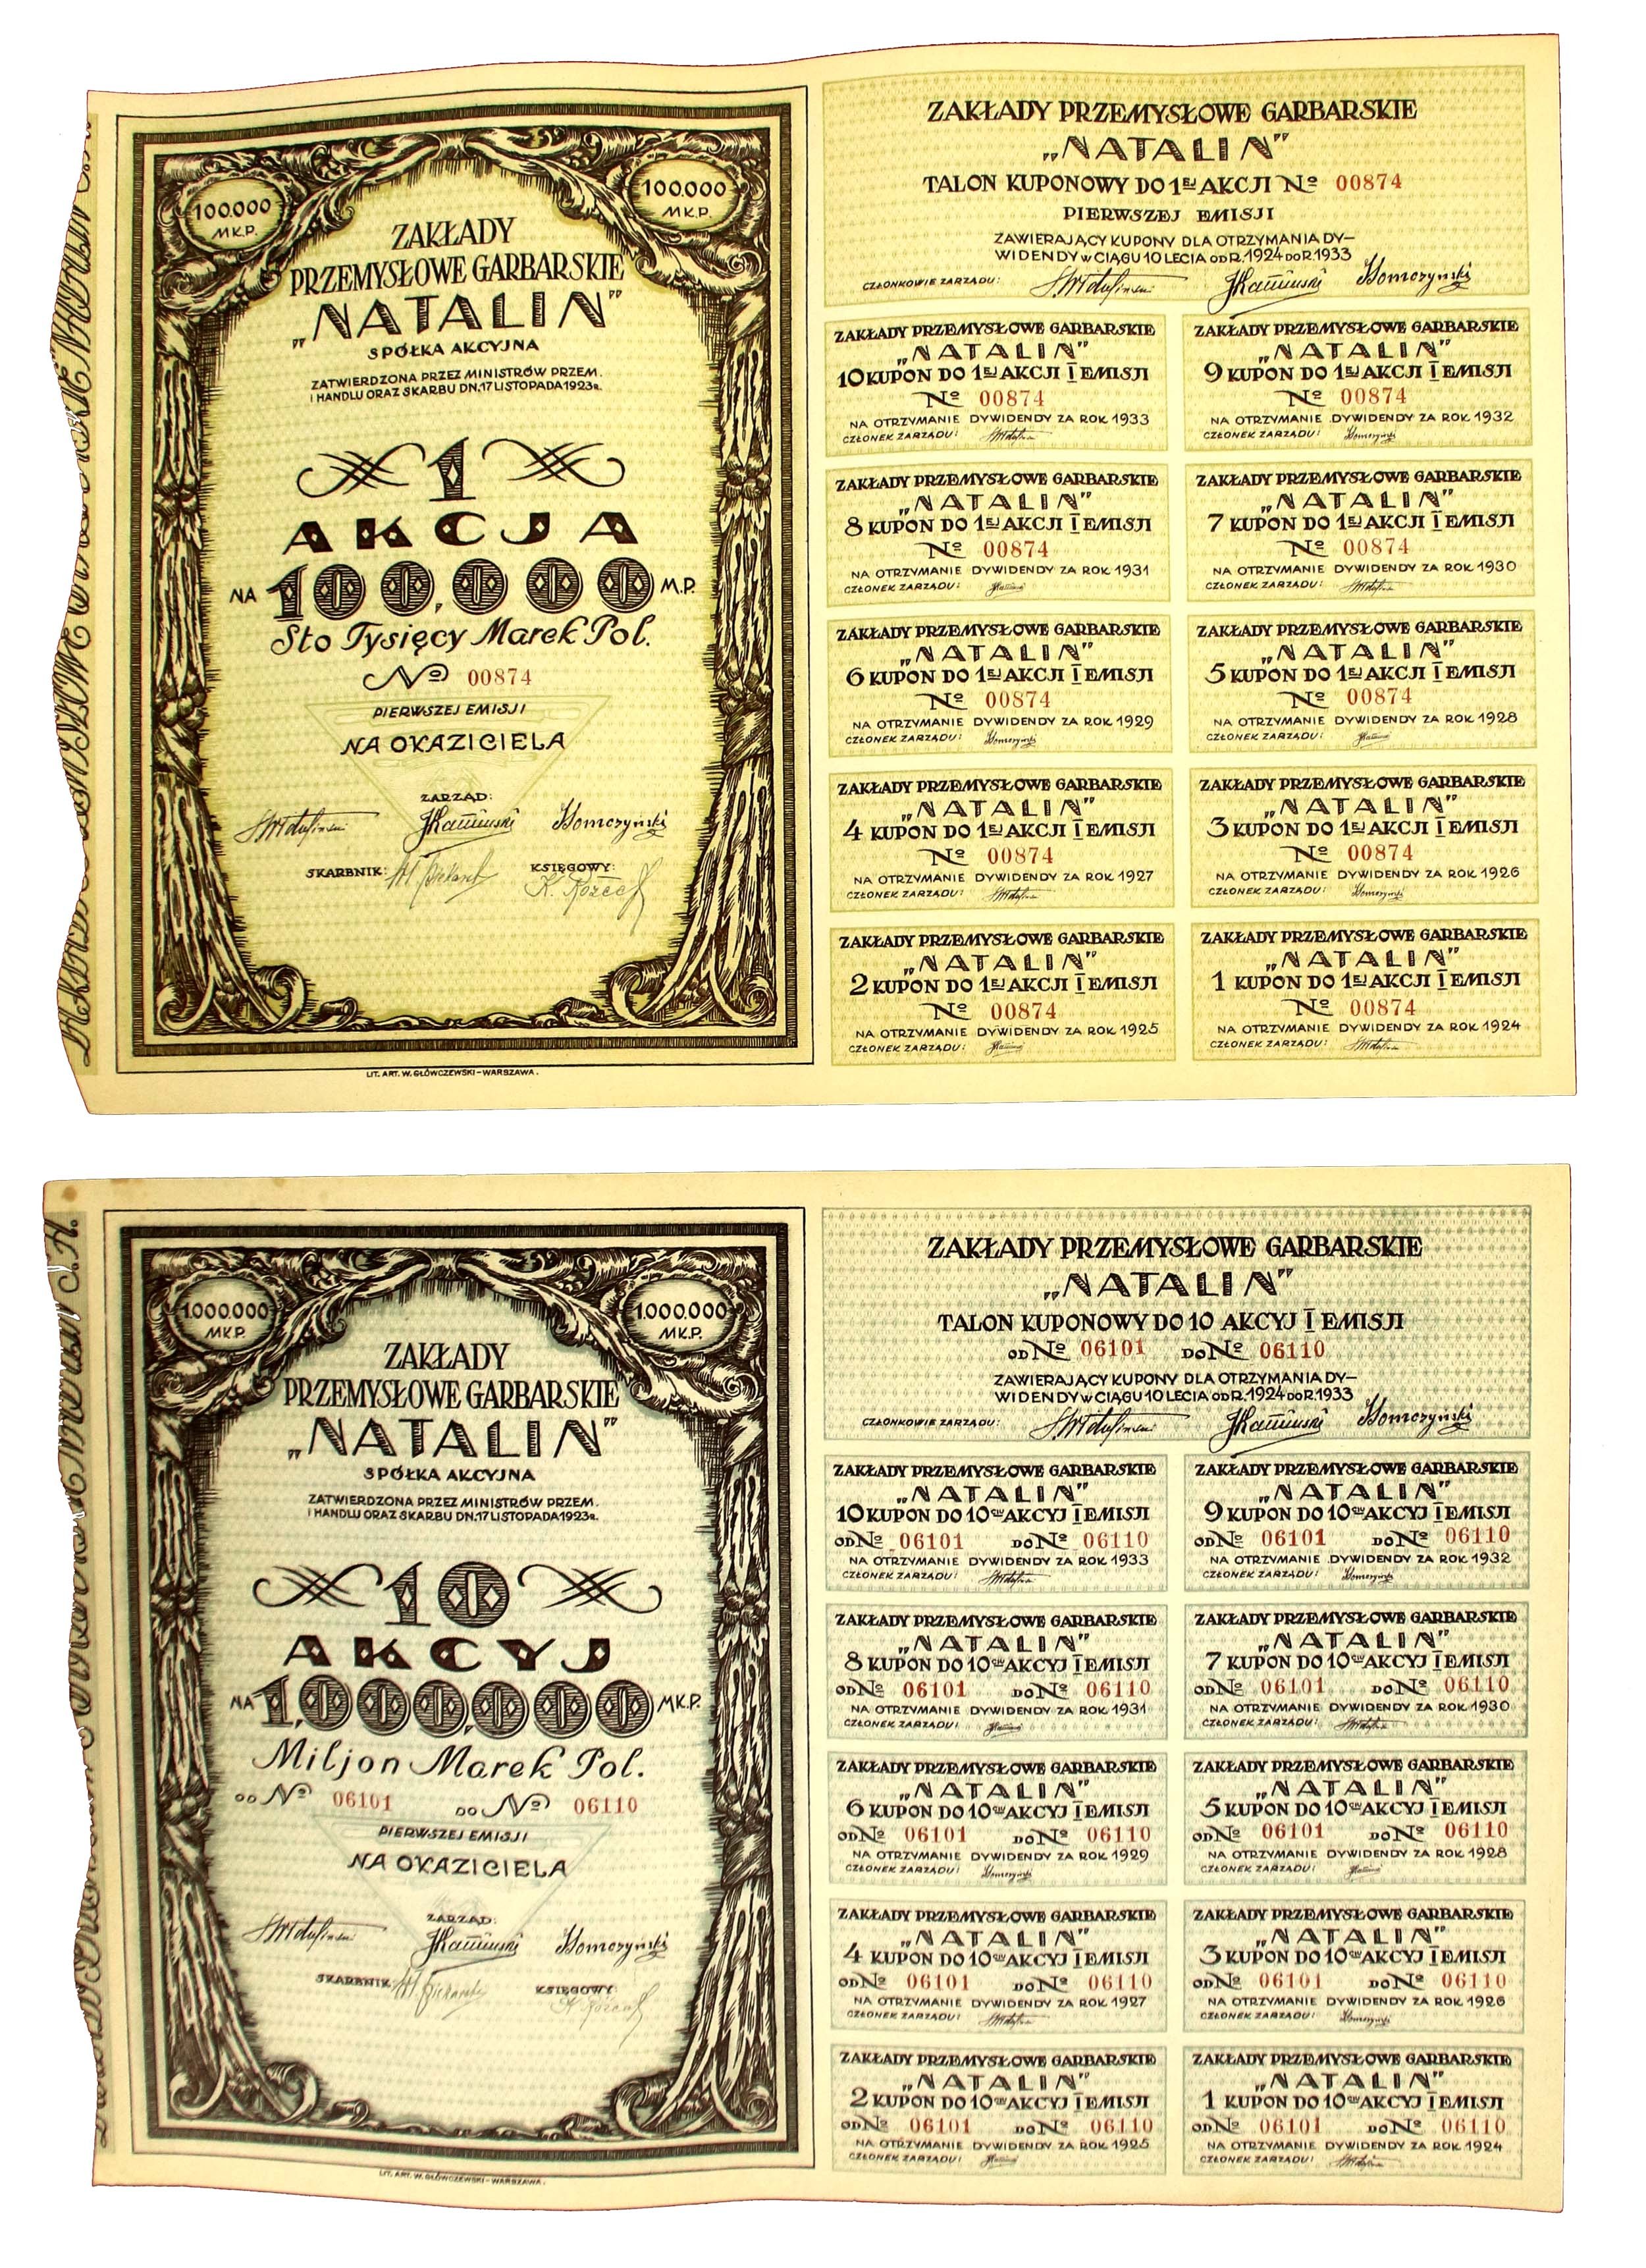 100.000
MK.P.
100.000
MK.P.
ZAKŁADY
PRZEMYSŁOWE GARBARSKIE
„NATALIN”
SPÓŁKA AKCYJNA
ZATWIERDZONA PRZEZ MINISTRÓW PRZEM.
I HANDLU ORAZ SKARBU DN. 17 LISTOPADA 1923 R.
1
AKCJA
NA 100,000 M.P.
Sto Tysięcy Marek Pol.
Nº 00874
PIERWSZEJ EMISJI
NA OKAZICIELA
ZARZĄD:
JKamiński
SKARBNIK:
KSIĘGOWY:
LIT. ART. W. GŁÓWCZEWSKI – WARSZAWA.
ZAKŁADY PRZEMYSŁOWE GARBARSKIE
„NATALIN”
TALON KUPONOWY DO 1EJ AKCJI Nº 00874
PIERWSZEJ EMISJI
ZAWIERAJĄCY KUPONY DLA OTRZYMANIA DY–
WIDENDY W CIĄGU 10 LECIA OD R. 1924 DO R. 1933
CZŁONKOWIE ZARZĄDU: JKamiński
ZAKŁADY PRZEMYSŁOWE GARBARSKIE
„NATALIN”
10 KUPON DO 1EJ AKCJI I EMISJI
Nº 00874
NA OTRZYMANIE DYWIDENDY ZA ROK 1933
CZŁONEK ZARZĄDU:
ZAKŁADY PRZEMYSŁOWE GARBARSKIE
„NATALIN”
9 KUPON DO 1EJ AKCJI I EMISJI
Nº 00874
NA OTRZYMANIE DYWIDENDY ZA ROK 1932
CZŁONEK ZARZĄDU:
ZAKŁADY PRZEMYSŁOWE GARBARSKIE
„NATALIN”
8 KUPON DO 1EJ AKCJI I EMISJI
Nº 00874
NA OTRZYMANIE DYWIDENDY ZA ROK 1931
CZŁONEK ZARZĄDU:
ZAKŁADY PRZEMYSŁOWE GARBARSKIE
„NATALIN”
7 KUPON DO 1EJ AKCJI I EMISJI
Nº 00874
NA OTRZYMANIE DYWIDENDY ZA ROK 1930
CZŁONEK ZARZĄDU:
ZAKŁADY PRZEMYSŁOWE GARBARSKIE
„NATALIN”
6 KUPON DO 1EJ AKCJI I EMISJI
Nº 00874
NA OTRZYMANIE DYWIDENDY ZA ROK 1929
CZŁONEK ZARZĄDU:
ZAKŁADY PRZEMYSŁOWE GARBARSKIE
„NATALIN”
5 KUPON DO 1EJ AKCJI I EMISJI
Nº 00874
NA OTRZYMANIE DYWIDENDY ZA ROK 1928
CZŁONEK ZARZĄDU:
ZAKŁADY PRZEMYSŁOWE GARBARSKIE
„NATALIN”
4 KUPON DO 1EJ AKCJI I EMISJI
Nº 00874
NA OTRZYMANIE DYWIDENDY ZA ROK 1927
CZŁONEK ZARZĄDU:
ZAKŁADY PRZEMYSŁOWE GARBARSKIE
„NATALIN”
3 KUPON DO 1EJ AKCJI I EMISJI
Nº 00874
NA OTRZYMANIE DYWIDENDY ZA ROK 1926
CZŁONEK ZARZĄDU:
ZAKŁADY PRZEMYSŁOWE GARBARSKIE
„NATALIN”
2 KUPON DO 1EJ AKCJI I EMISJI
Nº 00874
NA OTRZYMANIE DYWIDENDY ZA ROK 1925
CZŁONEK ZARZĄDU:
ZAKŁADY PRZEMYSŁOWE GARBARSKIE
„NATALIN”
1 KUPON DO 1EJ AKCJI I EMISJI
Nº 00874
NA OTRZYMANIE DYWIDENDY ZA ROK 1924
CZŁONEK ZARZĄDU:
1.000.000
MK.P.
1.000.000
MK.P.
ZAKŁADY
PRZEMYSŁOWE GARBARSKIE
„NATALIN”
SPÓŁKA AKCYJNA
ZATWIERDZONA PRZEZ MINISTRÓW PRZEM.
I HANDLU ORAZ SKARBU DN. 17 LISTOPADA 1923 R.
10
AKCYJ
NA 1,000,000 MK.P.
Miljon Marek Pol.
OD Nº 06101 DO Nº 06110
PIERWSZEJ EMISJI
NA OKAZICIELA
ZARZĄD:
JKamiński
SKARBNIK:
KSIĘGOWY:
LIT. ART. W. GŁÓWCZEWSKI – WARSZAWA.
ZAKŁADY PRZEMYSŁOWE GARBARSKIE
„NATALIN”
TALON KUPONOWY DO 10 AKCYJ I EMISJI
OD Nº 06101 DO Nº 06110
ZAWIERAJĄCY KUPONY DLA OTRZYMANIA DY–
WIDENDY W CIĄGU 10 LECIA OD R. 1924 DO R. 1933
CZŁONKOWIE ZARZĄDU: JKamiński
ZAKŁADY PRZEMYSŁOWE GARBARSKIE
„NATALIN”
10 KUPON DO 10CIU AKCYJ I EMISJI
OD Nº 06101 DO Nº 06110
NA OTRZYMANIE DYWIDENDY ZA ROK 1933
CZŁONEK ZARZĄDU:
ZAKŁADY PRZEMYSŁOWE GARBARSKIE
„NATALIN”
9 KUPON DO 10CIU AKCYJ I EMISJI
OD Nº 06101 DO Nº 06110
NA OTRZYMANIE DYWIDENDY ZA ROK 1932
CZŁONEK ZARZĄDU:
ZAKŁADY PRZEMYSŁOWE GARBARSKIE
„NATALIN”
8 KUPON DO 10CIU AKCYJ I EMISJI
OD Nº 06101 DO Nº 06110
NA OTRZYMANIE DYWIDENDY ZA ROK 1931
CZŁONEK ZARZĄDU:
ZAKŁADY PRZEMYSŁOWE GARBARSKIE
„NATALIN”
7 KUPON DO 10CIU AKCYJ I EMISJI
OD Nº 06101 DO Nº 06110
NA OTRZYMANIE DYWIDENDY ZA ROK 1930
CZŁONEK ZARZĄDU:
ZAKŁADY PRZEMYSŁOWE GARBARSKIE
„NATALIN”
6 KUPON DO 10CIU AKCYJ I EMISJI
OD Nº 06101 DO Nº 06110
NA OTRZYMANIE DYWIDENDY ZA ROK 1929
CZŁONEK ZARZĄDU:
ZAKŁADY PRZEMYSŁOWE GARBARSKIE
„NATALIN”
5 KUPON DO 10CIU AKCYJ I EMISJI
OD Nº 06101 DO Nº 06110
NA OTRZYMANIE DYWIDENDY ZA ROK 1928
CZŁONEK ZARZĄDU:
ZAKŁADY PRZEMYSŁOWE GARBARSKIE
„NATALIN”
4 KUPON DO 10CIU AKCYJ I EMISJI
OD Nº 06101 DO Nº 06110
NA OTRZYMANIE DYWIDENDY ZA ROK 1927
CZŁONEK ZARZĄDU:
ZAKŁADY PRZEMYSŁOWE GARBARSKIE
„NATALIN”
3 KUPON DO 10CIU AKCYJ I EMISJI
OD Nº 06101 DO Nº 06110
NA OTRZYMANIE DYWIDENDY ZA ROK 1926
CZŁONEK ZARZĄDU:
ZAKŁADY PRZEMYSŁOWE GARBARSKIE
„NATALIN”
2 KUPON DO 10CIU AKCYJ I EMISJI
OD Nº 06101 DO Nº 06110
NA OTRZYMANIE DYWIDENDY ZA ROK 1925
CZŁONEK ZARZĄDU:
ZAKŁADY PRZEMYSŁOWE GARBARSKIE
„NATALIN”
1 KUPON DO 10CIU AKCYJ I EMISJI
OD Nº 06101 DO Nº 06110
NA OTRZYMANIE DYWIDENDY ZA ROK 1924
CZŁONEK ZARZĄDU: